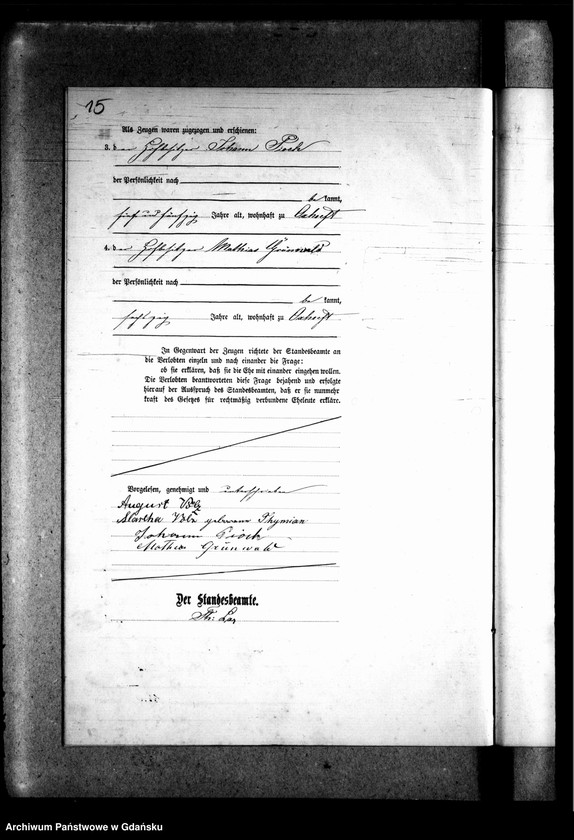 15
Als Zeugen waren zugezogen und erschienen:
3. der Hofbesitzer Johann Piock
der Persönlichkeit nach
be kannt,
fünf und fünfzig Jahre alt, wohnhaft zu Oxhöft
4. der Hofbesitzer Mathias Grünwald
der Persönlichkeit nach
be kannt,
sechszig Jahre alt, wohnhaft zu Oxhöft
In Gegenwart der Zeugen richtete der Standesbeamte an
die Verlobten einzeln und nach einander die Frage:
ob sie erklären, daß sie die Ehe mit einander eingehen wollen.
Die Verlobten beantworteten diese Frage bejahend und erfolgte
hierauf der Ausspruch des Standesbeamten, daß er sie nunmehr
kraft des Gesetzes für rechtmäßig verbundene Eheleute erkläre.
Vorgelesen, genehmigt und unterschrieben
August
Martha geborene Thymian
Johann Piock
Mathias Grünwald
Der Standesbeamte.
Archiwum Państwowe w Gdańsku